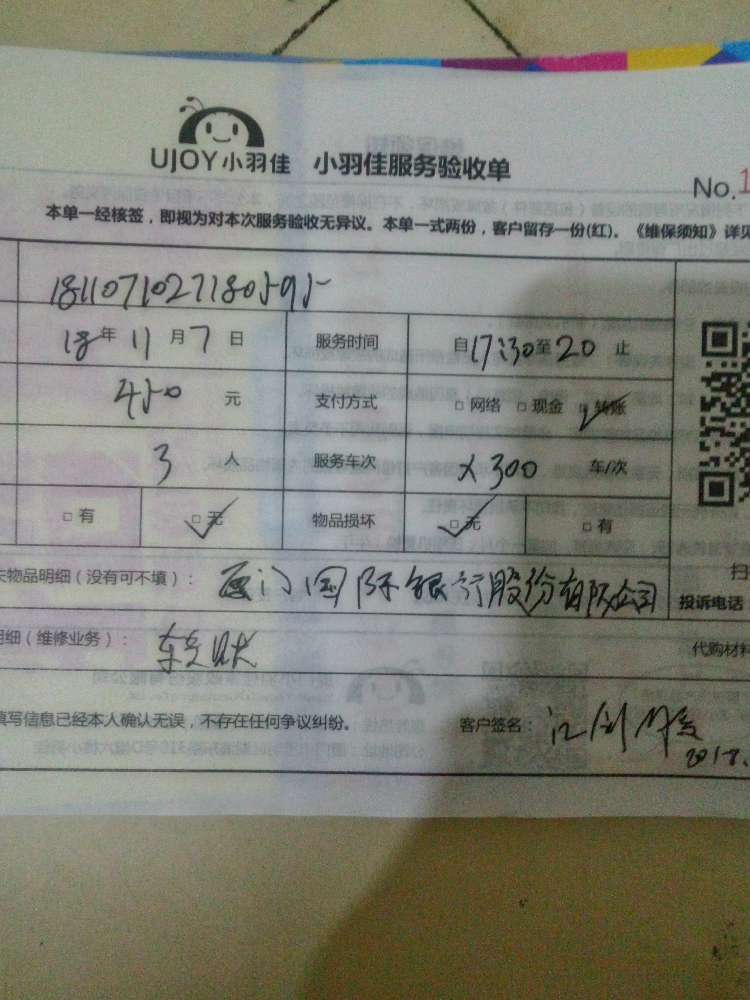 UJOY小羽佳 小羽佳服务验收单
No.1
本单一经核签，即视为对本次服务验收无异议。本单一式两份，客户留存一份(红)。《维保须知》详见
18年11月7日 服务时间 自17:30至20止
450元 支付方式 □网络 □现金 □转账
3人 服务车次 x300 车/次
□有 □无 物品损坏 □无 □有
物品明细（没有可不填）： 厦门国际银行股份有限公司
扫
投诉电话
明细（维修业务）：
代购材料
填写信息已经本人确认无误，不存在任何争议纠纷。 客户签名：